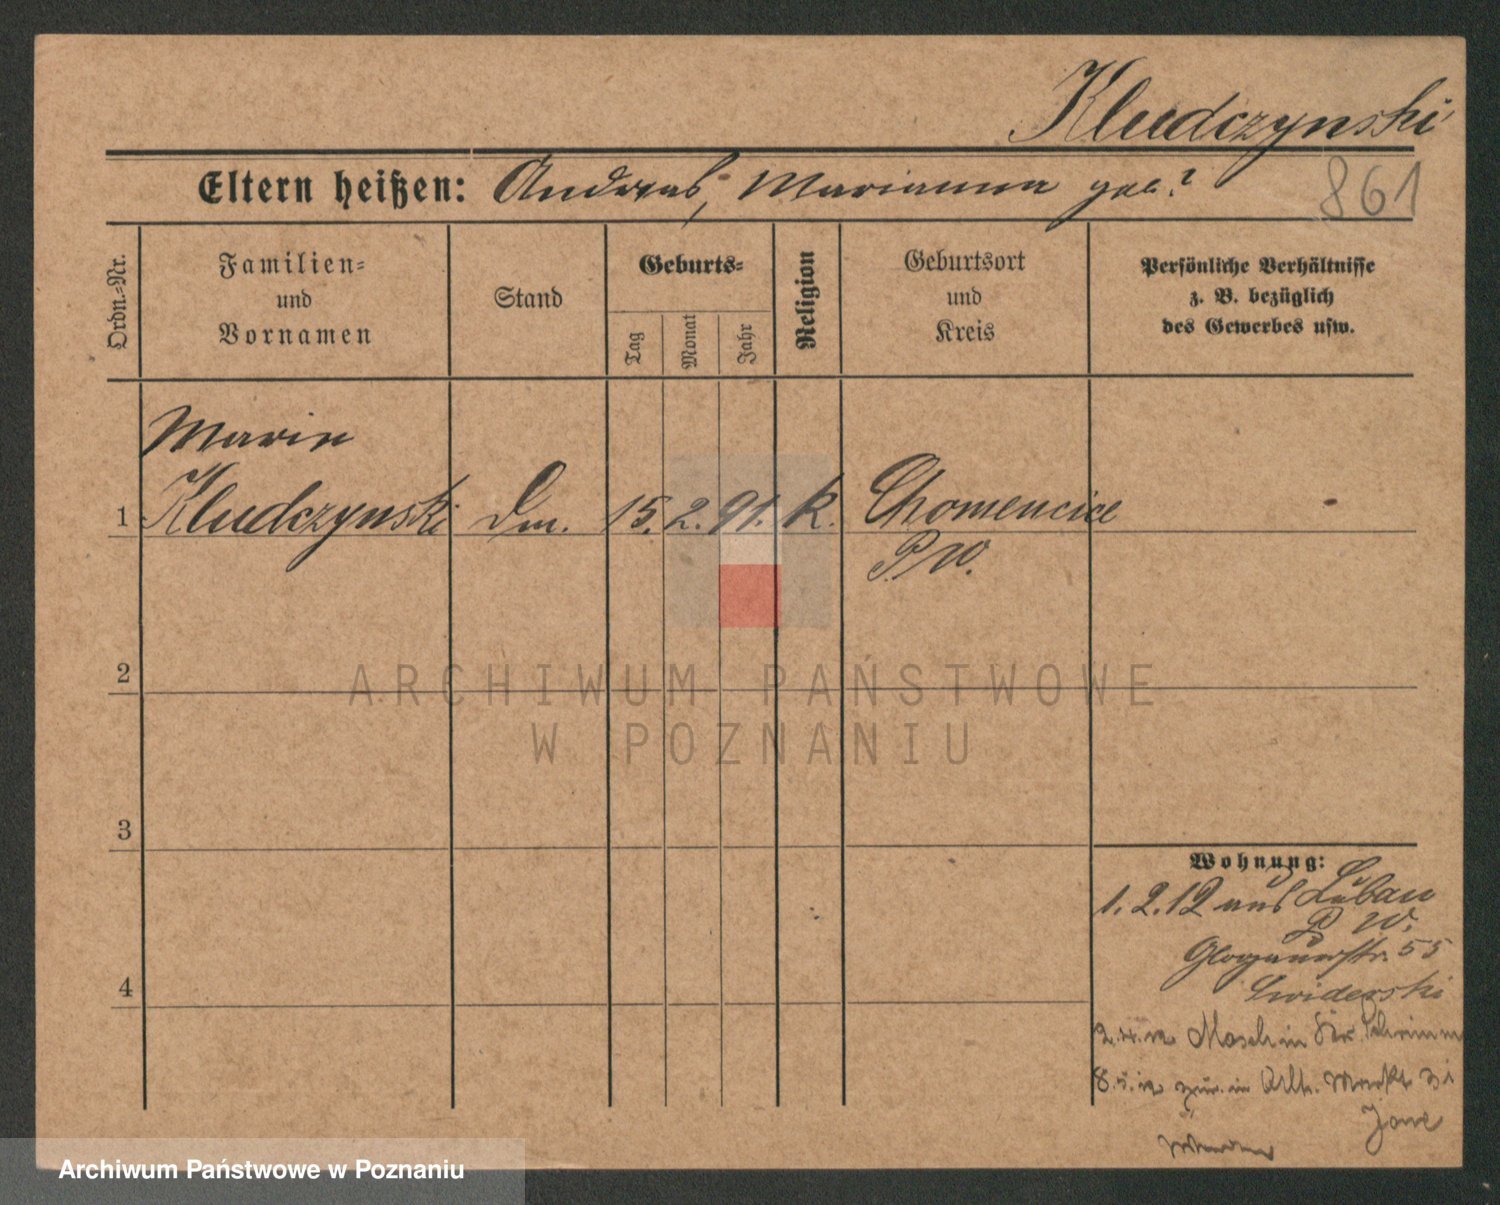 Kludczynski
Eltern heißen: Andreas, Marianna geb.?
861
Ordn.=Nr.
Familien=
und
Vornamen
Stand
Geburts=
Tag
Monat
Jahr
Religion
Geburtsort
und
Kreis
Persönliche Verhältnisse
z. B. bezüglich
des Gewerbes usw.
Marie
1 Kludczynski Dm. 15. 2. 91. k. Chomencice
P. W.
2
ARCHIWUM PAŃSTWOWE
W POZNANIU
3
Wohnung:
1. 2. 12 aus Luban
P. W.
Glogauerstr. 55
Swiderski
4
2.4.12 Moschin Kr. Schrimm
8.5.12 zur. in Alt. Markt
Archiwum Państwowe w Poznaniu